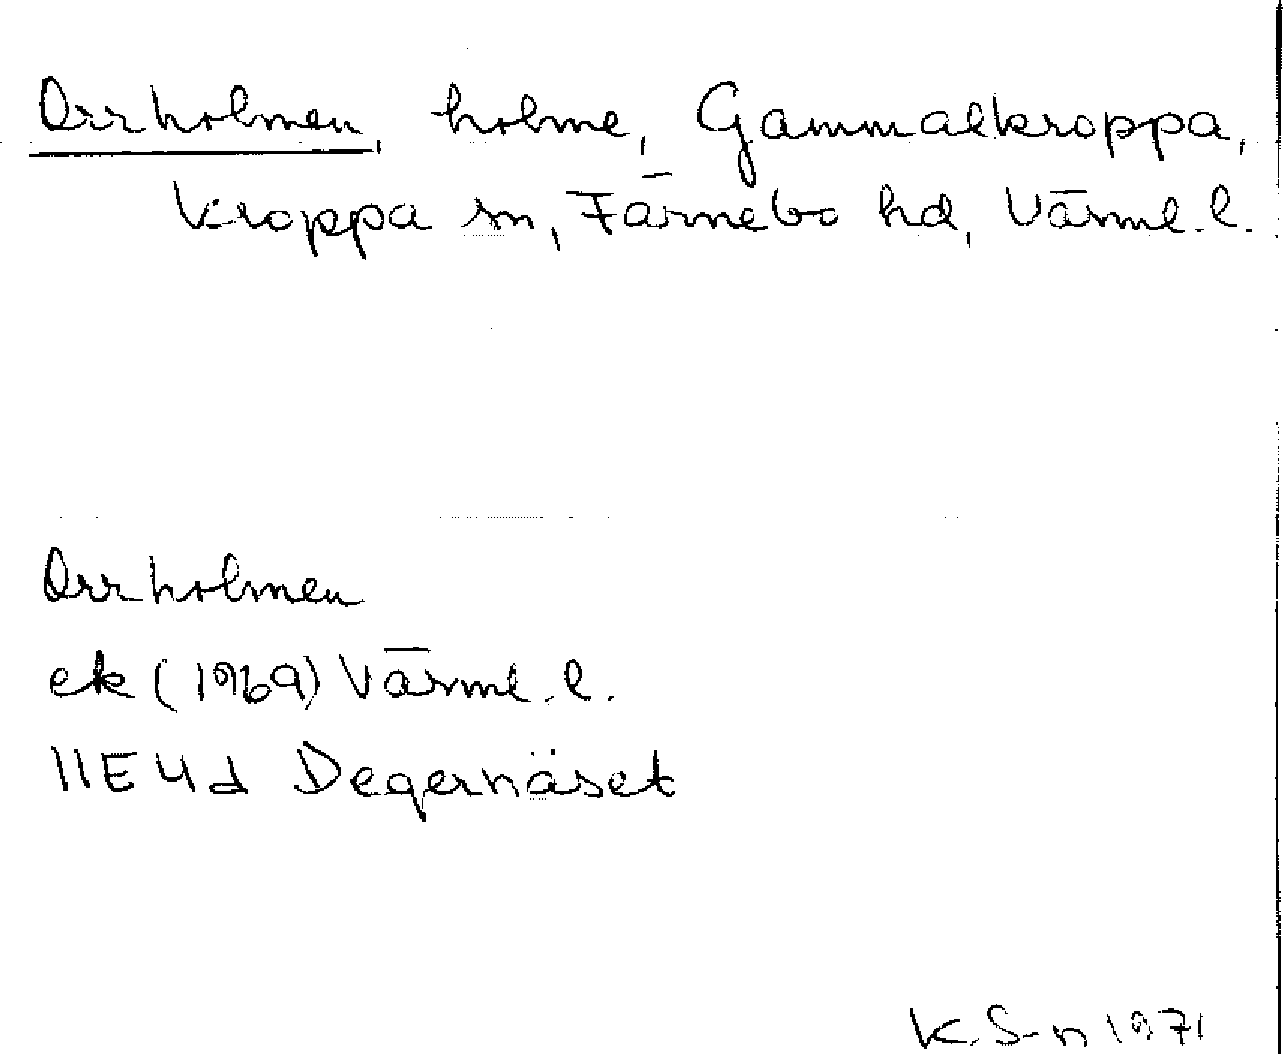 Orrholmen, holme, Gammalkroppa,
Kroppa sn, Färnebo hd, Värml. l.
Orrholmen
ek (1969) Värml. l.
11E4d Degernäset
K. S-n 1971